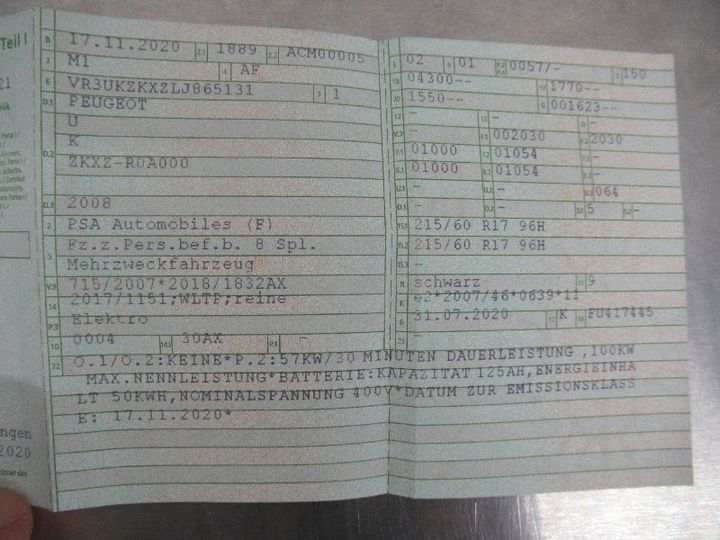 Teil I
B 17.11.2020 2.1 1889 2.2 ACM00005
J M1 4 AF
E VR3UKZKXZLJ865131 3 1
D.1 PEUGEOT
U
K
D.2 ZKXZ-R0A000
D.3 2008
2 PSA Automobiles (F)
5 Fz.z.Pers.bef.b. 8 Spl.
Mehrzweckfahrzeug
V.9 715/2007*2018/1832AX
14 2017/1151;WLTP;reine
P.3 Elektro
10 0004 14.1 30AX P.1 -
L 02 9 01 P.2 P.4 0057/- T 150
18 04300-- 19 1770--
20 1550-- G 001623--
12 - 13 - Q -
V.7 - F.1 002030 F.2 2030
7.1 01000 7.2 01054 7.3 -
8.1 01000 8.2 01054 8.3 -
U.1 - U.2 - U.3 064
O.1 - O.2 - S.1 5 S.2 -
15.1 215/60 R17 96H
15.2 215/60 R17 96H
15.3 -
R schwarz 11 9
K e2*2007/46*0639*11
6 31.07.2020 17 K 16 FU417445
21 -
22 O.1/O.2:KEINE*P.2:57KW/30 MINUTEN DAUERLEISTUNG ,100KW
MAX.NENNLEISTUNG*BATTERIE:KAPAZITAT 125AH,ENERGIEINHA
LT 50KWH,NOMINALSPANNUNG 400V*DATUM ZUR EMISSIONSKLASS
E: 17.11.2020*
21
ngen
2020